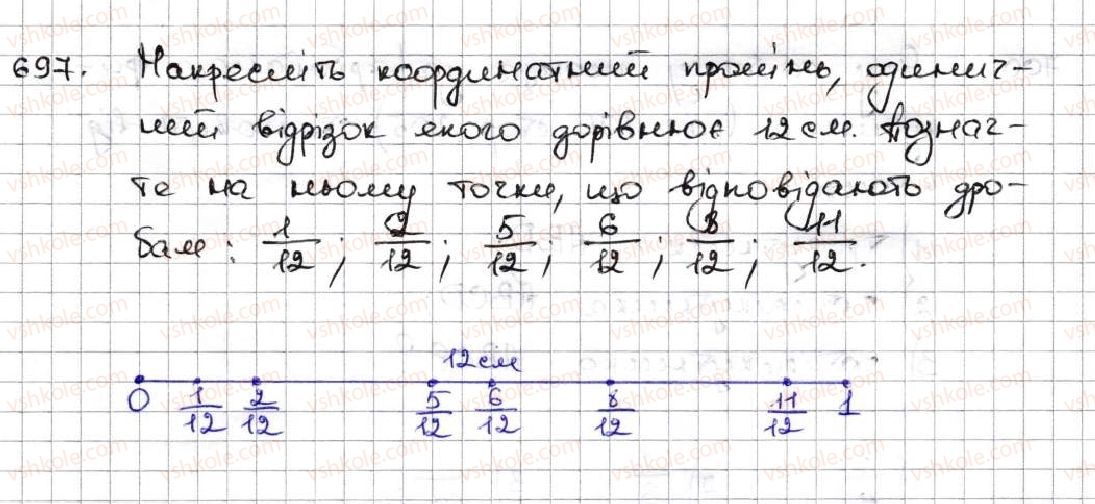 697. Накресліть координатний промінь, одинич-
ний відрізок якого дорівнює 12 см. Познач-
те на ньому точки, що відповідають дро-
бам: 1/12; 2/12; 5/12; 6/12; 8/12; 11/12.
12 см
0 1/12 2/12 5/12 6/12 8/12 11/12 1